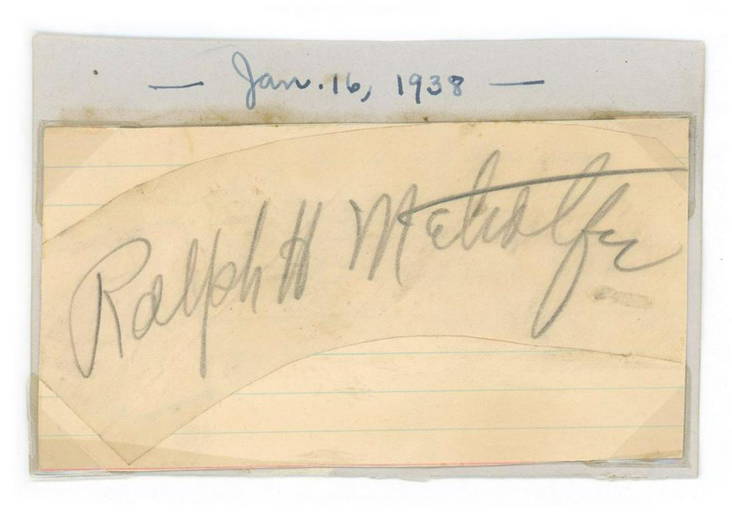 — Jan. 16, 1938 —
Ralph H Metcalfe